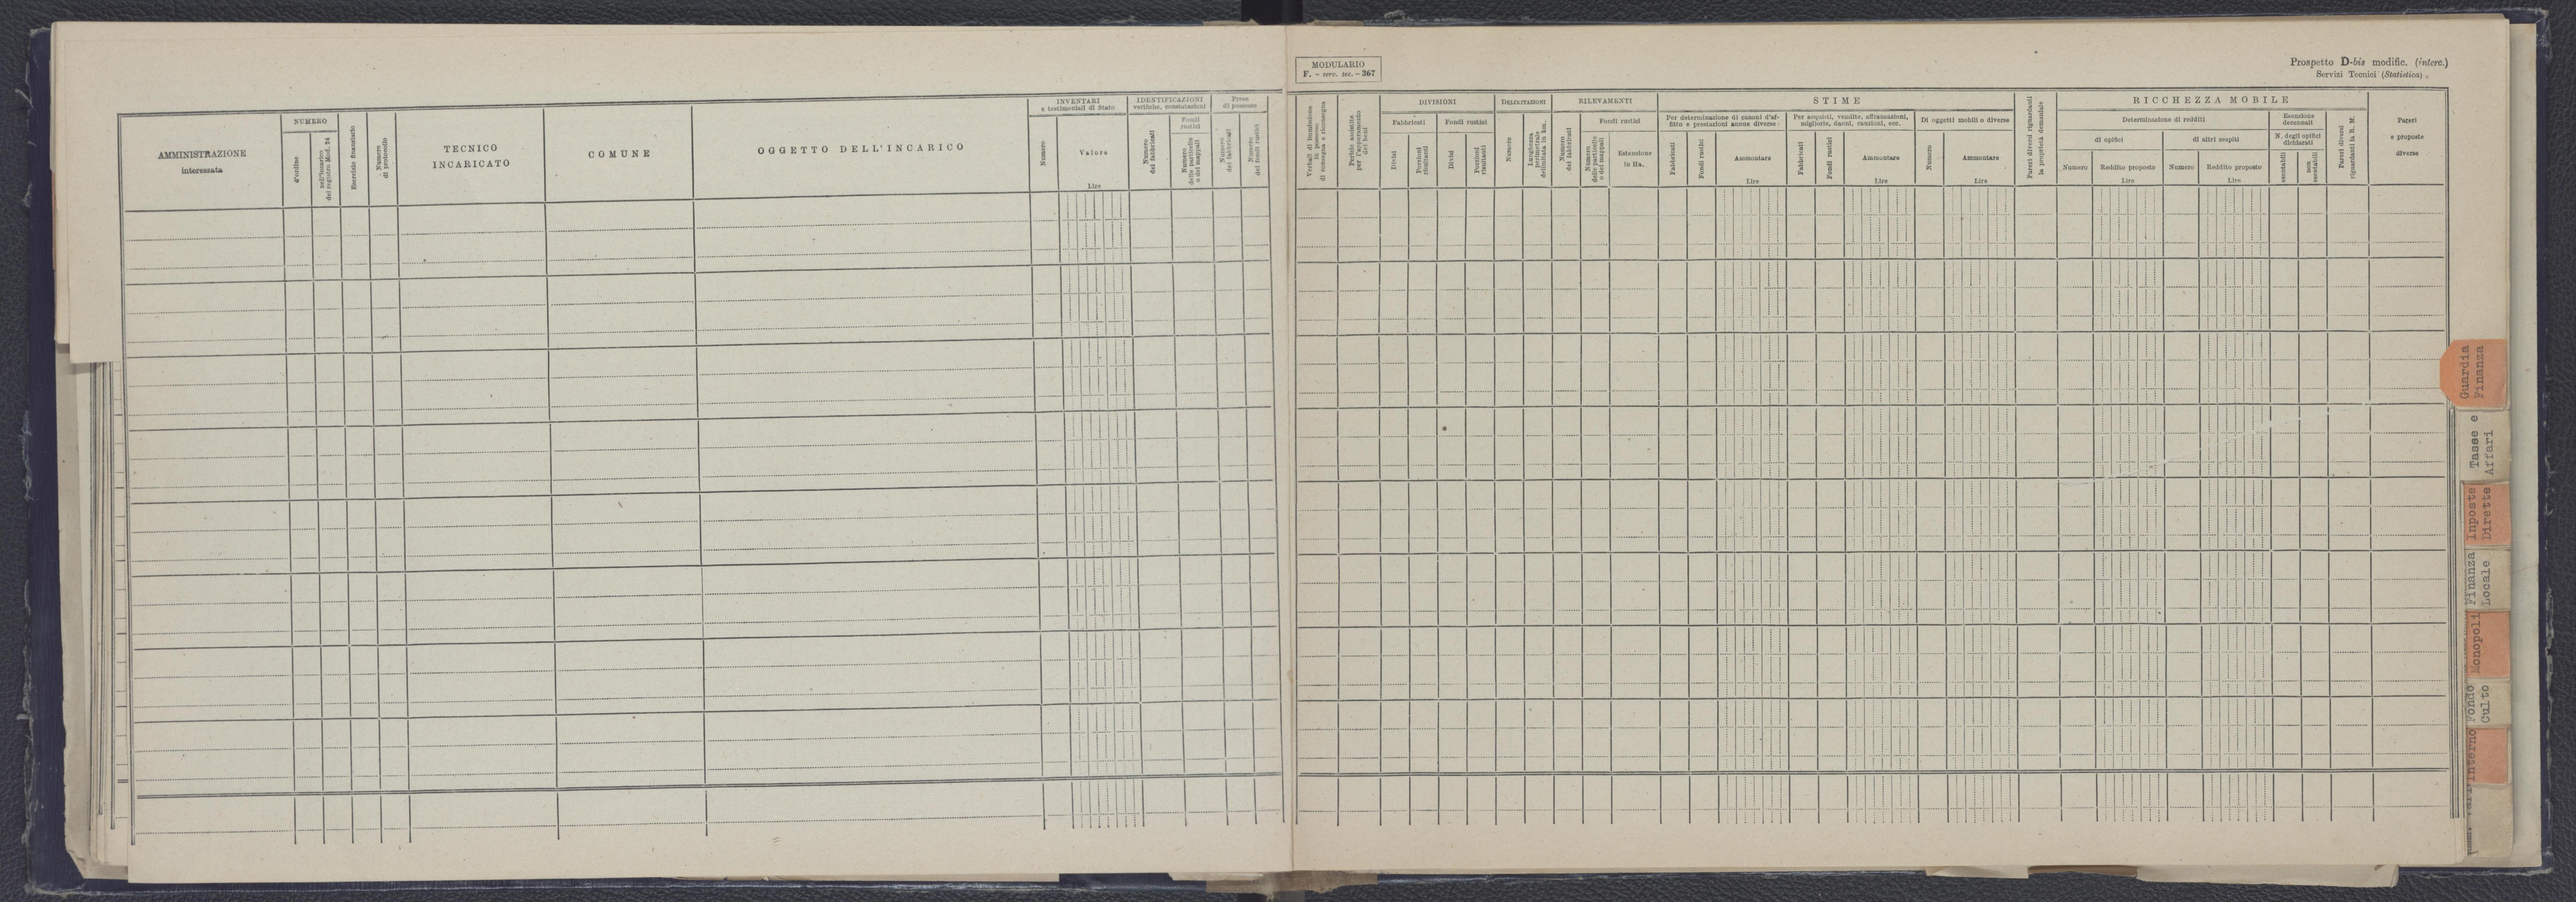 MODULARIO
F. - serv. tec. - 367
Prospetto D-bis modific. (interc.)
Servizi Tecnici (Statistica)
AMMINISTRAZIONE
interessata
NUMERO
d'ordine
nell'incarico
del registro Mod. 24
Esercizio finanziario
Numero
di protocollo
TECNICO
INCARICATO
COMUNE
OGGETTO DELL'INCARICO
INVENTARI
e testimoniali di Stato
Numero
Valore
Lire
IDENTIFICAZIONI
verifiche, constatazioni
Numero
dei fabbricati
Fondi
rustici
Numero
delle particelle
o dei mappali
Prese
di possesso
Numero
dei fabbricati
Numero
dei fondi rustici
Verbali di immissione
in possesso
di consegna e riconsegna
Perizie assistite
per l'appuramento
dei beni
DIVISIONI
Fabbricati
Divisi
Porzioni
risultanti
Fondi rustici
Divisi
Porzioni
risultanti
DELIMITAZIONI
Numero
Lunghezza
perimetrale
delimitata in km.
RILEVAMENTI
Numero
dei fabbricati
Fondi rustici
Numero
delle particelle
o dei mappali
Estensione
in Ha.
STIME
Per determinazione di canoni d'af-
fitto e prestazioni annue diverse
Fabbricati
Fondi rustici
Ammontare
Lire
Per acquisti, vendite, affrancazioni,
migliorie, danni, cauzioni, ecc.
Fabbricati
Fondi rustici
Ammontare
Lire
Di oggetti mobili o diverse
Numero
Ammontare
Lire
Pareri diversi riguardanti
la proprietà demaniale
RICCHEZZA MOBILE
Determinazione di redditi
di opifici
Numero
Reddito proposto
Lire
di altri cespiti
Numero
Reddito proposto
Lire
Esenzione
decennali
N. degli opifici
dichiarati
esentabili
non
esentabili
Pareri diversi
riguardanti la R. M.
Pareri
e proposte
diverse
Guardia
Finanza
Tasse e
Affari
Inposte
Dirette
Finanza
Locale
Monopoli
Fondo
Culto
Interno